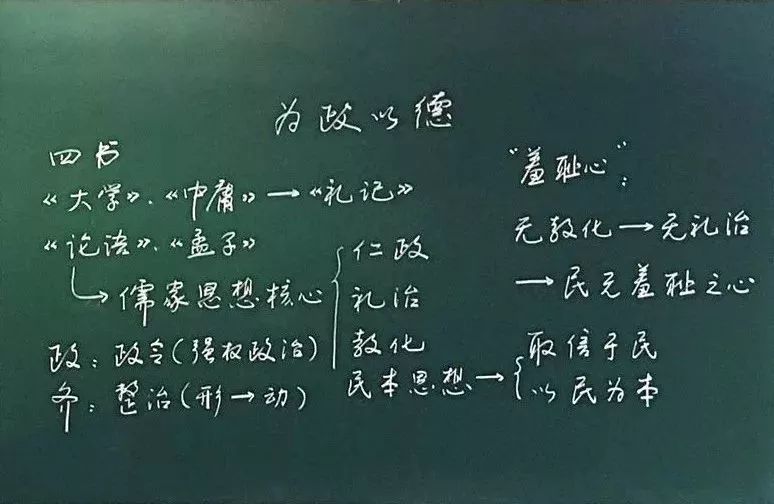 为政以德
四书
《大学》·《中庸》→《礼记》
《论语》·《孟子》
↳儒家思想核心
仁政
礼治
教化
民本思想→
取信于民
以民为本
政：政令(强权政治)
齐：整治(形→动)
"羞耻心"：
无教化→无礼治
→民无羞耻之心